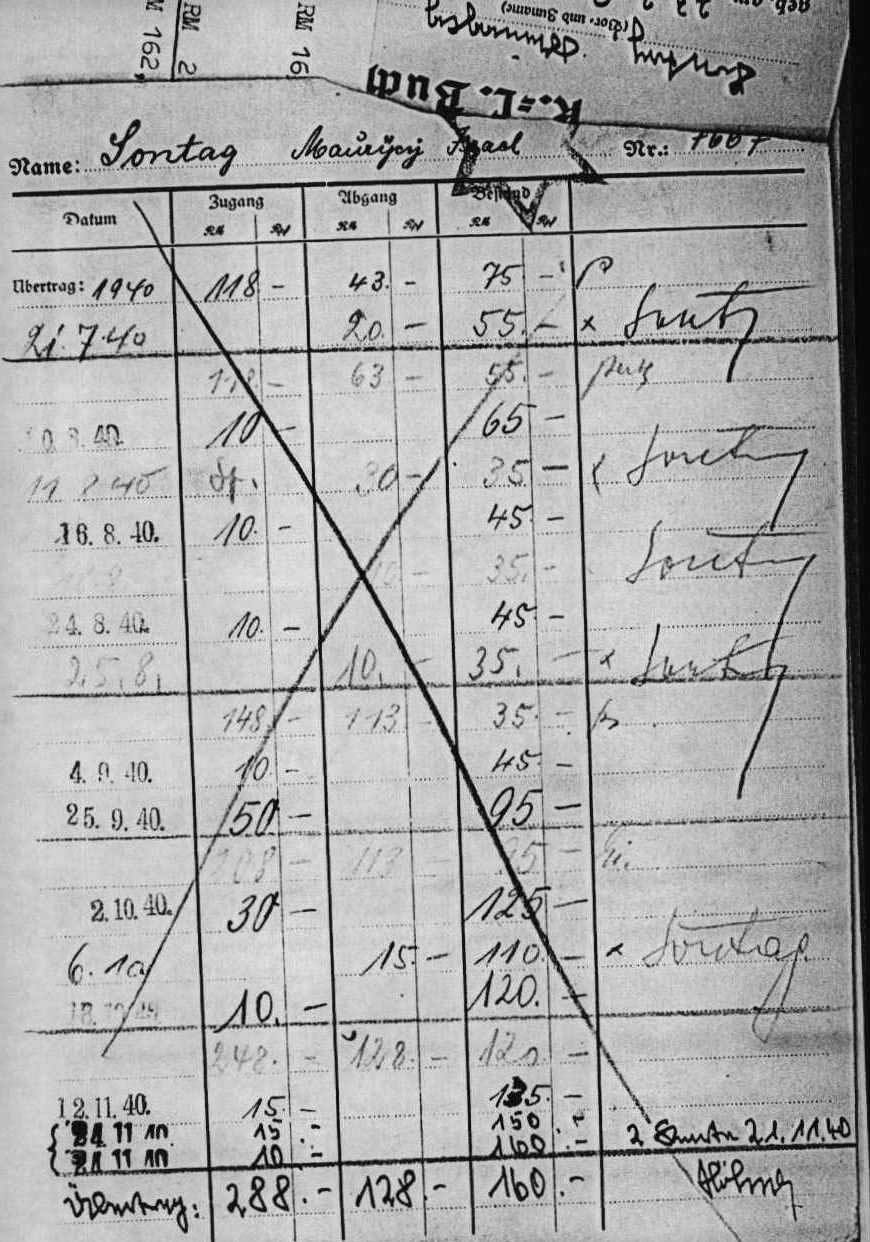 geb. am
(Vor= und Zuname)
K.=L. Buch
RM 162,
RM 2
RM 16
Name: Sontag Maurycy Israel Nr.: 7667
Datum Zugang Abgang Bestand
RM RPf RM RPf RM RPf
Übertrag: 1940 118 - 43. - 75 -
21. 7. 40 20. - 55. - x Sontag
118. - 63 - 55. -
10. 8. 40. 10 - 65 -
11 8 40 30 - 35 - Sontag
16. 8. 40. 10. - 45 -
10 - 35. - Sontag
24. 8. 40. 10. - 45 -
25. 8. 10. - 35. - x Sontag
148. - 113. - 35. -
4. 9. 40. 10. - 45 -
25. 9. 40. 50 - 95 -
208 - 113 - 95 -
2. 10. 40. 30 - 125 -
6. 10 15. - 110. - x Sontag
18. 10. 40 10. - 120. -
248. - 128. - 120 -
12. 11. 40. 15. - 135. -
21 11 40 15 .- 150 .-
21 11 40 10 - 160 .- 21. 11. 40
Übertrag: 288.- 128.- 160.-